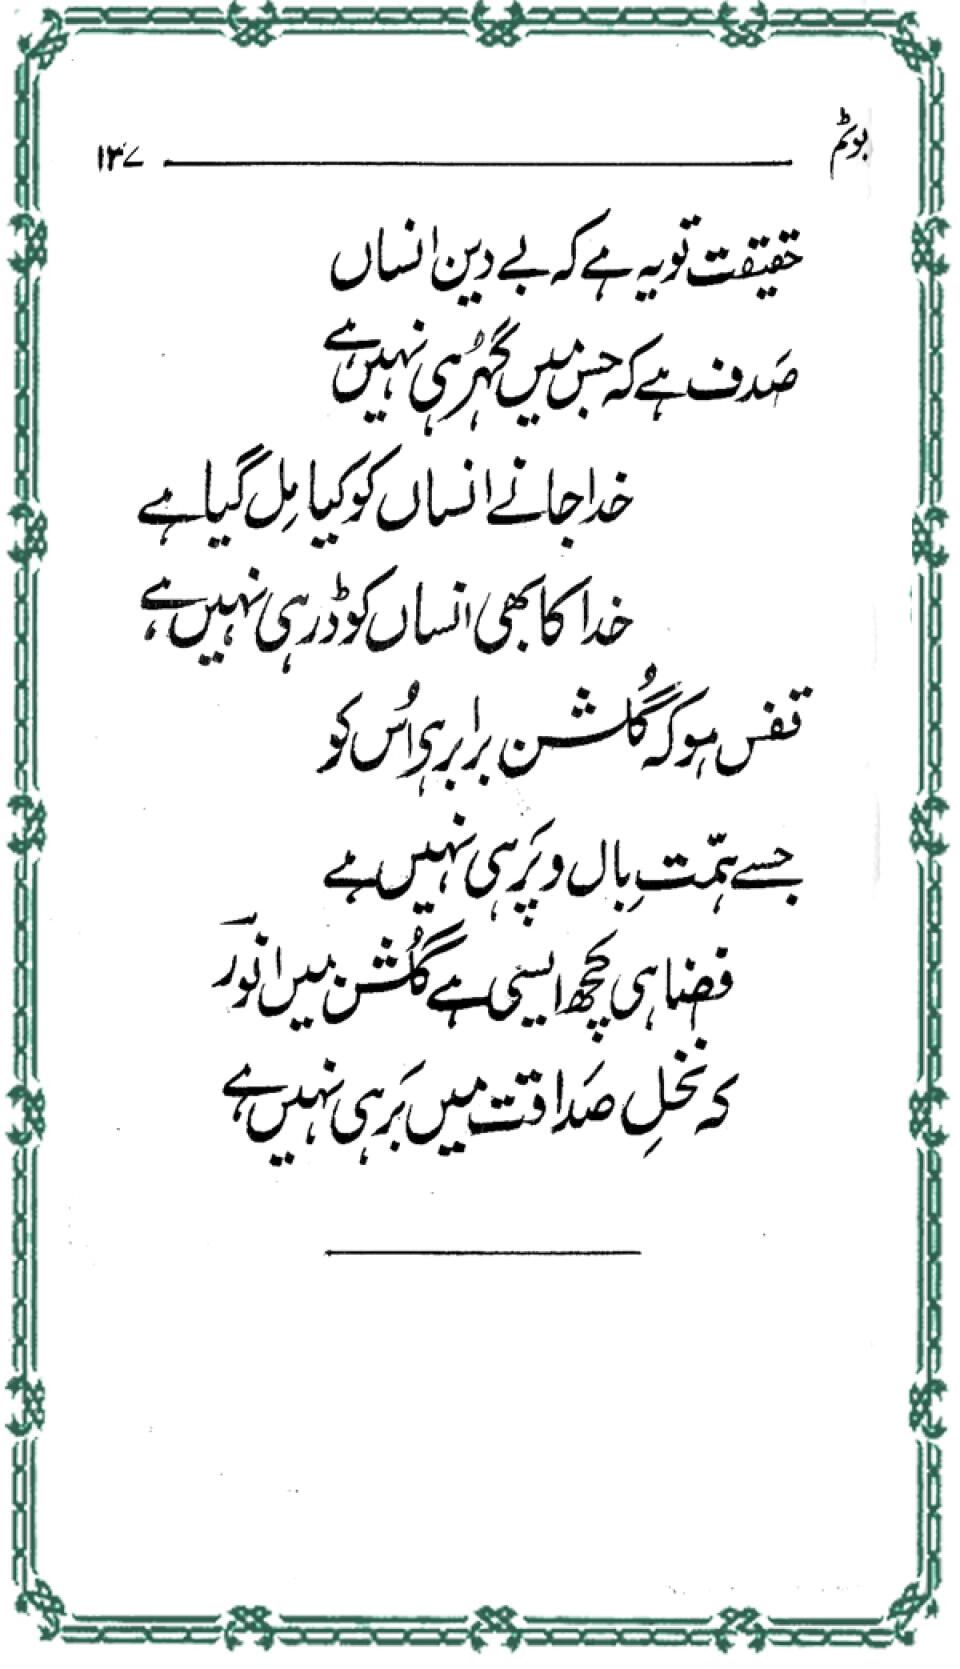 بوٹم ۱۳۷
حقیقت تو یہ ہے کہ بے دین انساں
صَدف ہے کہ جس میں گہرُ ہی نہیں ہے
خدا جانے انساں کو کیا مِل گیا ہے
خدا کا بھی انساں کو ڈر ہی نہیں ہے
قفس ہو کہ گُلشن برابر ہی اُس کو
جسے ہمّتِ بال و پَر ہی نہیں ہے
فضا ہی کچھ ایسی ہے گُلشن میں انورؔ
کہ نخلِ صَداقت میں بَر ہی نہیں ہے